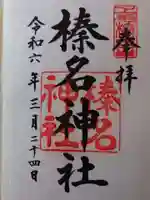 奉拝
榛名神社
榛名
神社
令和六年三月二十四日